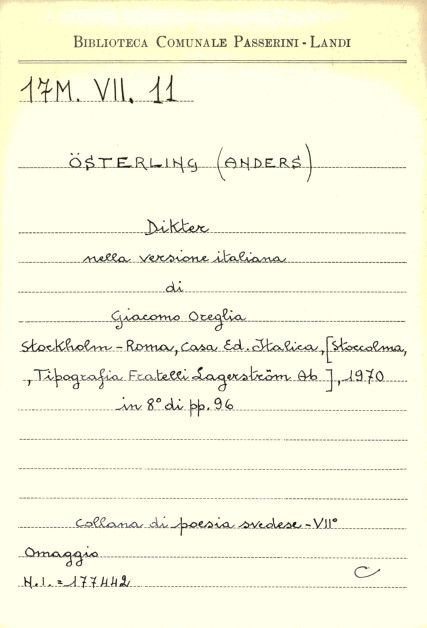 BIBLIOTECA COMUNALE PASSERINI - LANDI
17M. VII. 11
ÖSTERLING (ANDERS)
Dikter
nella versione italiana
di
Giacomo Oreglia
Stockholm - Roma, Casa Ed. Italica, [Stoccolma,
, Tipografia Fratelli Lagerström Ab], 1970
in 8° di pp. 96
Collana di poesia svedese - VII°
Omaggio
N.I. = 177442
C